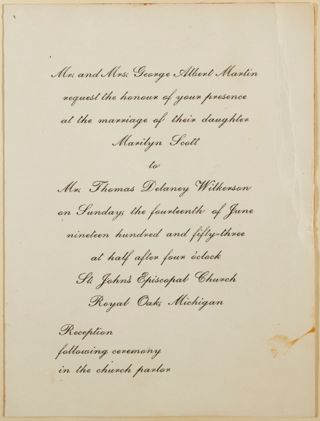 Mr. and Mrs. George Albert Martin
request the honour of your presence
at the marriage of their daughter
Marilyn Scott
to
Mr. Thomas Delaney Wilkerson
on Sunday, the fourteenth of June
nineteen hundred and fifty-three
at half after four o'clock
St. John's Episcopal Church
Royal Oak, Michigan
Reception
following ceremony
in the church parlor